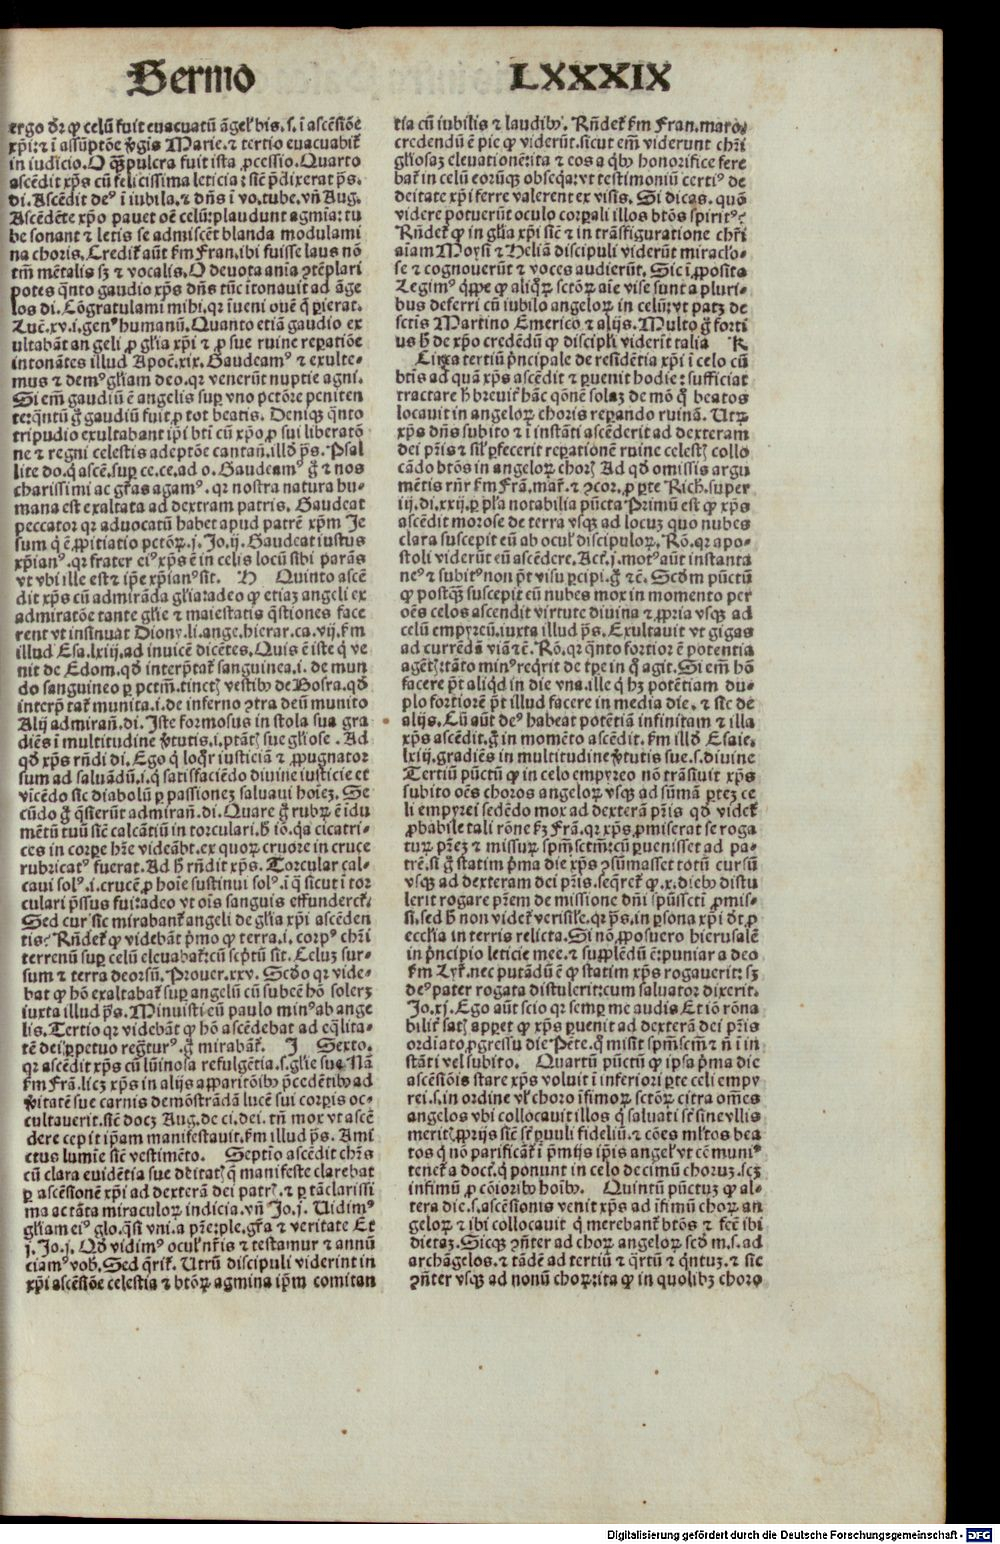 Sermo LXXXIX
ergo dr̄ ꝙ celū fuit euacuatū āgel'bis.s.ī ascēsiōe
xp̄i:⁊ ī assūptōe v̓gis Marie.⁊ tertio euacuabit̄
in iudicio.O qꝫ pulcra fuit ista ꝓcessio.Quarto
ascēdit xp̄s cū felicissima leticia:sic̄ p̄dixerat ps̄.
di.Ascēdit deꝰ ī iubila.⁊ dn̄s ī vo.tube.vn̄ Aug.
Ascēdēte xp̄o pauet oē celū:plaudunt agmīa:tu
be sonant ⁊ letis se admiscēt blanda modulami
na choris.Credit̄ aūt ẜm Fran.ibi fuisse laus nō
tm̄ mētalis sꝫ ⁊ vocalis.O deuota anīa ꝯtēplari
potes qn̄to gaudio xp̄s dn̄s tūc ītonauit ad āge
los di.Cōgratulami mihi.qr īueni ouē q̄ ꝑierat.
Luē.xv.i.genꝰ humanū.Quanto etiā gaudio ex
ultabāt angeli ꝓ gl̓ia xp̄i ⁊ ꝓ sue ruine reꝑatiōe
intonātes illud Apoc̄.xix.Gaudeamꝰ ⁊ exulte-
mus ⁊ demꝰ gl̓iam deo.qr venerūt nuptie agni.
Si em̄ gaudiū ē angelis suꝑ vno pctōre peniten
te:qn̄tū ḡ gaudiū fuit ꝓ tot beatis. Deniqꝫ qn̄to
tripudio exultabant ip̄i bt̄i cū xp̄o ꝓ sui liberatō
ne ⁊ regni celestis adeptōe cantan̄.illd̓ ps̄.Psal
lite do.q̓ ascē.suꝑ ce.ce.ad o.Gaudeamꝰ ḡ ⁊ nos
charissimi ac gr̄as agamꝰ.qr nostra natura hu-
mana est exaltata ad dextram patris. Gaudeat
peccator qr aduocatū habet apud patrē xp̄m Je
sum q̓ ē ꝓpitiatio pctōꝝ.j.Jo.ij.Gaudeat iustus
xp̄ianꝰ.qr frater eiꝰ xp̄s ē in celis locū sibi parās
vt vbi ille est ⁊ ip̄e xp̄ianꝰ sit. H Quinto ascē
dit xp̄s cū admirāda gl̓ia:adeo ꝙ etiaꝫ angeli ex
admiratōe tante gl̓ie ⁊ maiestatis q̄stiones face
rent vt insinuat Diony.li.ange.hierar.ca.vij.ẜm
illud Esa.lxiij.ad inuicē dicētes.Quis ē iste q̓ ve
nit de Edom.qd̓ interp̄tat̄ sanguinea.i.de mun
do sanguineo ꝑ pctm̄.tinctis vestibꝰ de Bosra.qd̓
interp̄tat̄ munita.i.de inferno ꝯtra deū munito
Alij admiran̄.di.Iste formosus in stola sua gra
diēs ī multitudine v̓tutis.i.ptāt̄ sue gl̓iose. Ad
qd̓ xp̄s rn̄di di.Ego q̓ loqr̄ iusticiā ⁊ ꝓpugnator
sum ad saluādū.i.q̓ satisfaciēdo diuine iusticie et
vīcēdo sic diabolū ꝑ passioneꝫ saluaui hoīeꝫ. Se
cūdo ḡ q̄sierūt admiran̄.di.Quare ḡ rubꝝ ē īdu
mētū tuū sic̄ calcātiū in torculari.ẖ iō.qa cicatri-
ces in corꝑe hr̄e videāt̄.ex quoꝝ cruore in cruce
rubricatꝰ fuerat.Ad ẖ rn̄dit xp̄s.Torcular cal-
caui solꝰ.i.crucē ꝓ hoīe sustinui solꝰ.ī q̓ sicut ī tor
culari p̄ssus fui:adeo vt oīs sanguis effunderet̄.
Sed cur sic mirabant̄ angeli de gl̓ia xp̄i ascēden
tis? Rn̄det̄ ꝙ videbāt pͥmo ꝙ terra.i.corpꝰ chr̄i
terrenū suꝑ celū eleuabat̄:cū sc̄ptū sit. Celuꝫ sur-
sum ⁊ terra deorsū.Prouer.xxv. Scd̓o qr vide-
bāt ꝙ hō exaltabat̄ suꝑ angelū cū subcē hō soleꝫ
iuxta illud ps̄.Minuisti eū paulo minꝰ ab ange
lis.Tertio qr videbāt ꝙ hō ascēdebat ad eq̄lita-
tē dei:ꝑpetuo regn̄turꝰ.ḡ mirabāt̄. J Sexto.
qr ascēdit xp̄s cū lūinosa refulgētia.s.gl̓ie sue Nā
ẜm Frā.licꝫ xp̄s in alijs apparitōibꝰ p̄cedētibꝰ ad
v̓itatē sue carnis demōstrādā lucē sui corꝑis oc-
cultauerit.sic̄ docꝫ Aug.de ci.dei.tn̄ mox vt ascē
dere cepit ip̄am manifestauit.ẜm illud ps̄. Ami
ctus lumīe sic̄ vestimēto. Septīo ascēdit chr̄s
cū clara euidētia sue deitatis q̄ manifeste clarebat
ꝑ ascēsionē xp̄i ad dexterā dei patr̄.⁊ ꝑ tā clarissi
ma ac tāta miraculoꝝ indicia.vn̄ Jo.j. Uidimꝰ
gl̓iam eiꝰ glo.q̄si vni.a pr̄e:ple.gr̄a ⁊ veritate Et
j.Jo.j. Qd̓ vidimꝰ ocul'nr̄is ⁊ testamur ⁊ annū
ciamꝰ vob̄.Sed q̄rit̄. Utrū discipuli viderint in
xp̄i ascēsiōe celestia ⁊ btōꝝ agmina ip̄m comitan
tia cū iubilis ⁊ laudibꝰ. Rn̄det̄ ẜm Fran.maro.
credendū ē pie ꝙ viderūt.sicut em̄ viderunt chr̄i
gl̓iosaꝫ eleuationē:ita ⁊ eos a qͥbꝰ honorifice fere
bat̄ in celū eorūqꝫ obseq̄a:vt testimoniū certiꝰ de
deitate xp̄i ferre valerent ex visis. Si dicas. quō
videre potuerūt oculo corꝑali illos bt̄os spiritꝰ?
Rn̄det̄ ꝙ in gl̓ia xp̄i sic̄ ⁊ in trāsfiguratione chr̄i
aīam Moysi ⁊ Heliā discipuli viderūt miraclo-
se ⁊ cognouerūt ⁊ voces audierūt. Sic ī ꝓposito
Legimꝰ q̄ꝑꝑe ꝙ aliq̓ꝝ sctōꝝ aīe vise sunt a pluri-
bus deferri cū iubilo angeloꝝ in celū:vt patꝫ de
sctis Martino Emerico ⁊ alijs.Multo ḡ forti
us ẖ de xp̄o credēdū ꝙ discipl'i viderīt talia K
Circa tertiū pͥncipale de residētia xp̄i ī celo cū
bt̄is ad quā xp̄s ascēdit ⁊ ꝑuenit hodie:sufficiat
tractare ẖ breuit̄ hāc qōnē solaꝫ de mō q̓ beatos
locauit in angeloꝝ choris reꝑando ruinā. Utꝝ
xp̄s dn̄s subito ⁊ ī instāti ascēderit ad dexteram
dei pr̄is ⁊ sil'ꝑfecerit reꝑationē ruine celestis collo
cādo btōs in angeloꝝ choris Ad qd̓ omissis argu
mētis rn̄r ẜm Frā.mar̄.⁊ ꝯcor.ꝓ ꝑte Rich.super
iij.di.xxij.ꝑ pl'a notabilia pūcta Primū est ꝙ xp̄s
ascēdit morose de terra vsqꝫ ad locuꝫ quo nubes
clara suscepit eū ab ocul' discipuloꝝ. Rō.qr apo-
stoli viderūt eū ascēdere.Act̄.j.motꝰ aūt instanta
neꝰ ⁊ subitꝰ non pt̄ visu ꝑcipi.ḡ ⁊c̄. Scd̓m pūctū
ꝙ postqꝫ suscepit eū nubes mox in momento per
oēs celos ascendit virtute diuina ⁊ ꝓpria vsqꝫ ad
celū empyreū.iuxta illud ps̄. Exultauit vt gigas
ad currēdā viā ⁊c̄. Rō.qr qn̄to fortior ē potentia
agētis:tāto minꝰ reqͥrit de tꝑe in q̓ agit.Si em̄ hō
facere pt̄ aliqd̓ in die vna.ille q̓ hꝫ potētiam du-
plo fortiorē pt̄ illud facere in media die.⁊ sic de
alijs. Cū aūt deꝰ habeat potētiā infinitam ⁊ illa
xp̄s ascēdit.ḡ in momēto ascēdit.ẜm illd̓ Esaie.
lxiij.gradiēs in multitudine v̓tutis sue.s.diuine
Tertiū pūctū ꝙ in celo empyreo nō trāsiuit xp̄s
subito oēs choros angeloꝝ vsqꝫ ad sūmā ꝑteꝫ ce
li empyrei sedēdo mox ad dexterā pr̄is qd̓ videt̄
ꝓbabile tali rōne ẜꝫ Frā.qr xp̄s ꝓmiserat se roga
tuꝝ pr̄eꝫ ⁊ missuꝝ spm̄sctm̄:cū ꝑuenisset ad pa-
trē.si ḡ statim pͥma die xp̄s ꝯsūmasset totū cursū
vsqꝫ ad dexteram dei pr̄is.seq̄ret̄ ꝙ.x.diebꝰ distu
lerit rogare pr̄em de missione dn̄i sp̄ussct̄i ꝓmis-
si.sed ẖ non videt̄ verisile.qr ps̄.in ꝑsona xp̄i dr̄.ꝓ
eccl'ia in terris relicta.Si nō ꝓposuero hierusalē
in pͥncipio leticie mee.⁊ suꝑplēdū ē:puniar a deo
ẜm Lyr̄.nec putādū ē ꝙ statim xp̄s rogauerit:sꝫ
deꝰ pater rogata distulerit:cum saluator dixerit.
Jo.xj.Ego aūt scio qr semꝑ me audis Et iō rōna
bilit̄ satis appet ꝙ xp̄s ꝑuenit ad dexterā dei pr̄is
ordiato ꝓgressu die Pēte.q̓ misit spm̄scm̄ ⁊ n̄ ī in
stāti vel subito. Quartū pūctū ꝙ ipsa pͥma die
ascēsiōis stare xp̄s voluit ī inferiori ꝑte celi empy
rei.s.in ordine vl' choro īfimoꝝ sctōꝝ citra om̄es
angelos vbi collocauit illos q̓ saluati st̄ sine vllis
meritis ꝓprijs sic̄ st̄ ꝑuuli fideliū.⁊ cōes ml̓tos bea
tos q̓ nō parificāt̄ ī pͥmijs ip̄is angel' vt cēmuniꝰ
tenet̄ a doct̄.q̓ ponunt in celo decimū choruꝫ.scꝫ
infimū ꝓ cōioribꝰ hoībꝰ. Quintū pūctuꝫ ꝙ al-
tera die.s.ascēsionis venit xp̄s ad īfimū choꝝ an
geloꝝ ⁊ ibi collocauit q̓ merebant̄ btōs ⁊ fec̄ ibi
dietaꝫ.Sicqꝫ ꝯn̄ter ad choꝝ angeloꝝ scd̓m.s.ad
archāgelos.⁊ tādē ad tertiū ⁊ qr̄tū ⁊ qͥntuꝫ.⁊ sic
ꝯn̄ter vsqꝫ ad nonū choꝝ:ita ꝙ in quolibꝫ choro
Digitalisierung gefördert durch die Deutsche Forschungsgemeinschaft - DFG